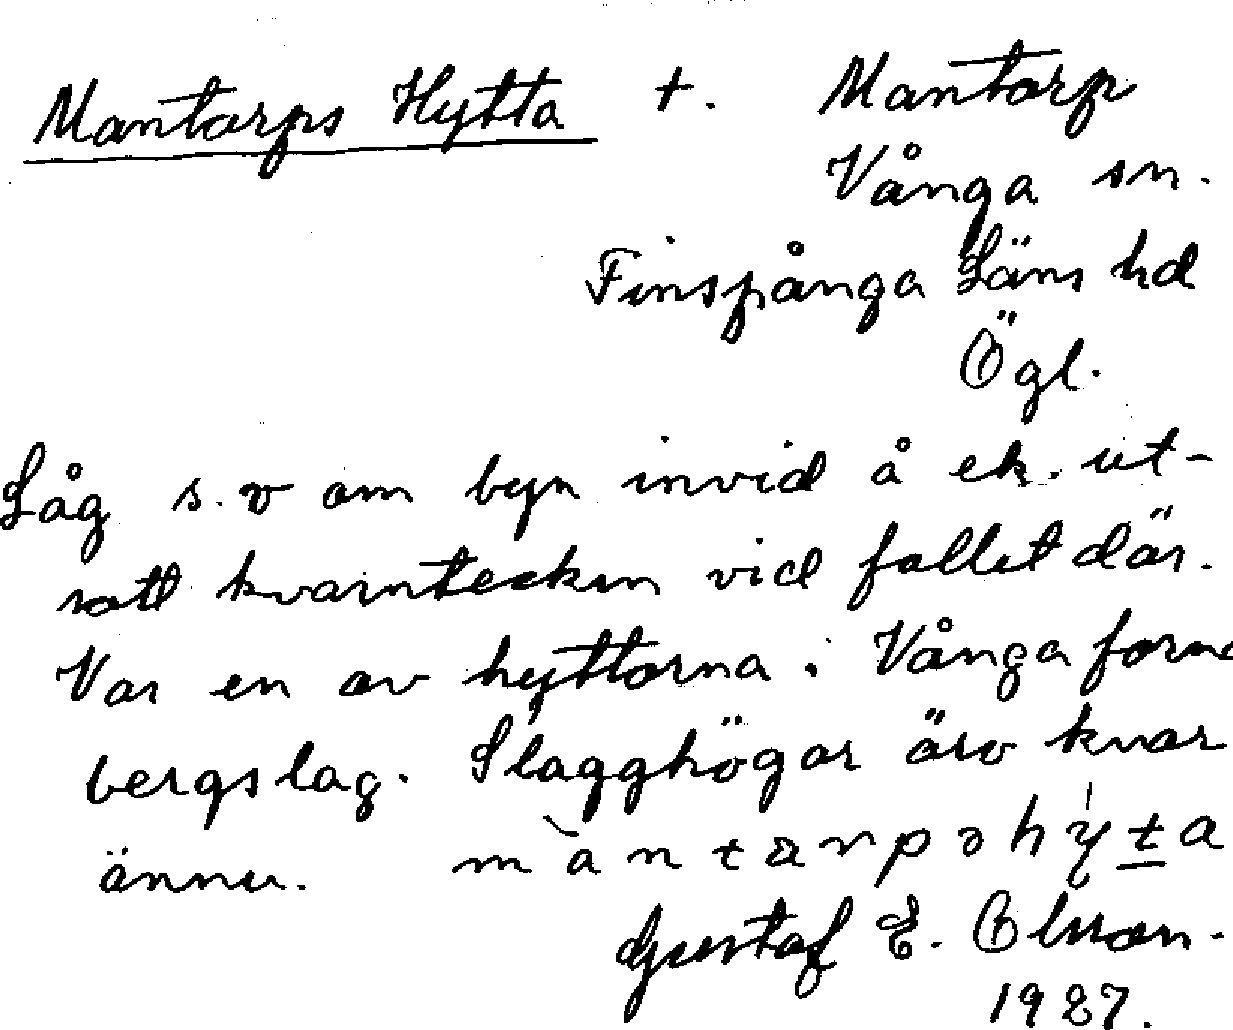 Mantorps Hytta +. Mantorp
Vånga sn.
Finspånga Läns hd
Ögl.
Låg s.v om byn invid å ek. ut-
satt kvarntecken vid fallet där.
Var en av hyttorna i Vånga forna
bergslag. Slagghögar äro kvar
ännu. màntarpshýta
Gustaf E. Olsson.
1927.